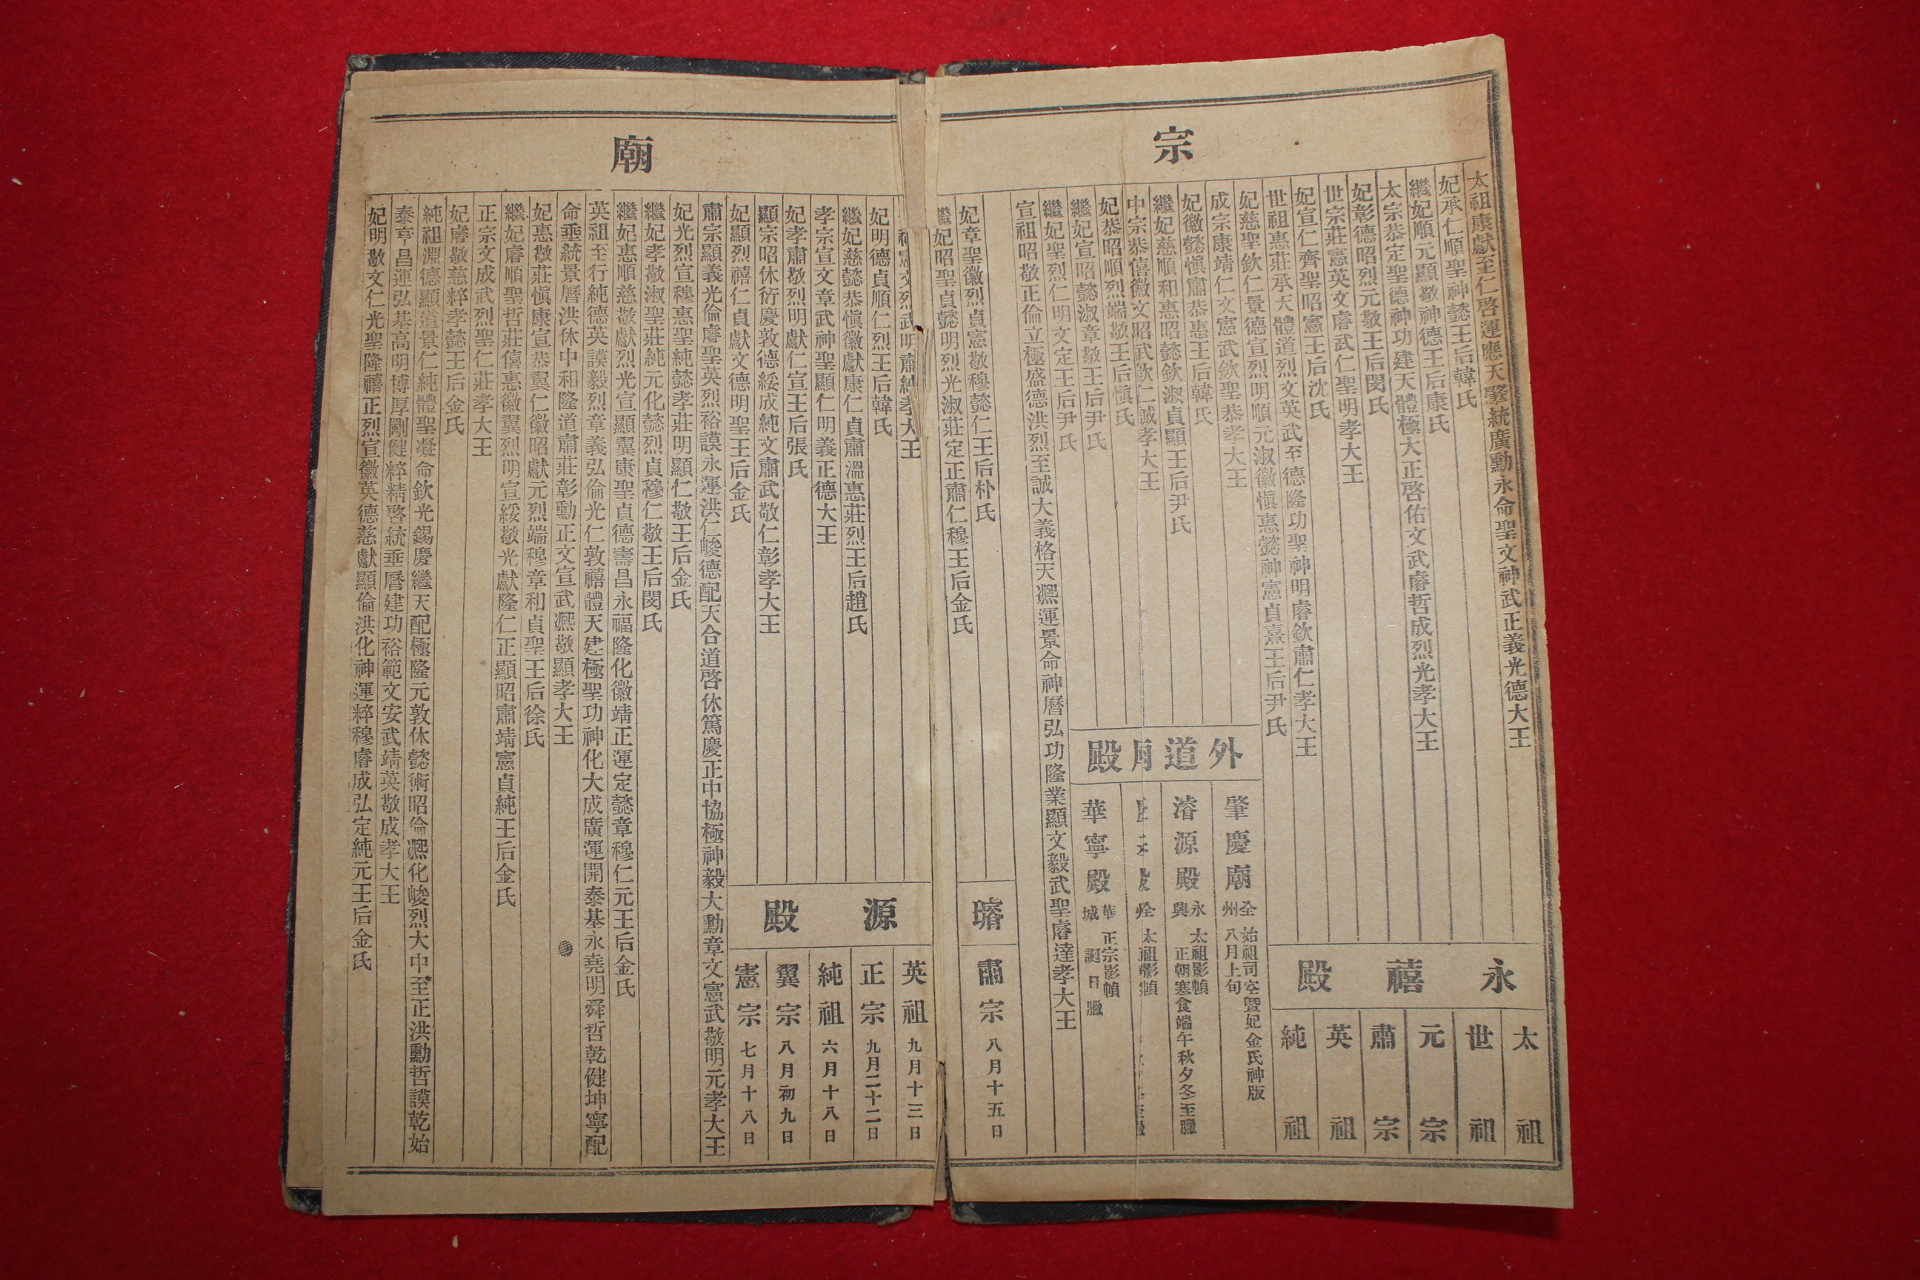 宗
太祖康獻至仁啓運應天肇統廣勳永命聖文神武正義光德大王
妃承仁順聖神懿王后韓氏
繼妃順元顯敬神德王后康氏
太宗恭定聖德神功建天體極大正啓佑文武睿哲成烈光孝大王
妃彰德昭烈元敬王后閔氏
世宗莊憲英文睿武仁聖明孝大王
妃宣仁齊聖昭憲王后沈氏
世祖惠莊承天體道烈文英武至德隆功聖神明睿欽肅仁孝大王
妃慈聖欽仁景德宣烈明順元淑徽愼惠懿神憲貞熹王后尹氏
成宗康靖仁文憲武欽聖恭孝大王
妃徽懿愼肅恭惠王后韓氏
繼妃慈順和惠昭懿欽淑貞顯王后尹氏
中宗恭僖徽文昭武欽仁誠孝大王
妃恭昭順烈端敬王后愼氏
繼妃宣昭懿淑章敬王后尹氏
繼妃聖烈仁明文定王后尹氏
宣祖昭敬正倫立極盛德洪烈至誠大義格天凞運景命神曆弘功隆業顯文毅武聖睿達孝大王
妃章聖徽烈貞憲敬穆懿仁王后朴氏
繼妃昭聖貞懿明烈光淑莊定正肅仁穆王后金氏
永禧殿
太祖
世祖
元宗
肅宗
英祖
純祖
外道殿
肇慶廟 全州 始祖司空曁妃金氏神版 八月上旬
濬源殿 永興 太祖影幀 正朝寒食端午秋夕冬至臘
太祖影幀
華寧殿 華城 正宗影幀 誕日臘
璿
肅宗 八月十五日
廟
文烈武明肅純孝大王
妃明德貞順仁烈王后韓氏
繼妃慈懿恭愼徽獻康仁貞肅溫惠莊烈王后趙氏
孝宗宣文章武神聖顯仁明義正德大王
妃孝肅敬烈明獻仁宣王后張氏
顯宗昭休衍慶敦德綏成純文肅武敬仁彰孝大王
妃顯烈禧仁貞獻文德明聖王后金氏
肅宗顯義光倫睿聖英烈裕謨永運洪仁峻德配天合道啓休篤慶正中協極神毅大勳章文憲武敬明元孝大王
妃光烈宣穆惠聖純懿孝莊明顯仁敬王后金氏
繼妃孝敬淑聖莊純元化懿烈貞穆仁敬王后閔氏
繼妃惠順慈敬獻烈光宣顯翼康聖貞德壽昌永福隆化徽靖正運定懿章穆仁元王后金氏
英祖至行純德英謨毅烈章義弘倫光仁敦禧體天建極聖功神化大成廣運開泰基永堯明舜哲乾健坤寧配
命垂統景曆洪休中和隆道肅莊彰勳正文宣武凞敬顯孝大王
妃惠敬莊愼康宣恭翼仁徽昭獻元烈端穆章和貞聖王后徐氏
繼妃睿順聖哲莊僖惠徽翼烈明宣綏敬光獻隆仁正顯昭肅靖憲貞純王后金氏
正宗文成武烈聖仁莊孝大王
妃睿敬慈粹孝懿王后金氏
純祖淵德顯道景仁純體聖凝命欽光錫慶繼天配極隆元敦休懿術昭倫凞化峻烈大中至正洪勳哲謨乾始
泰亨昌運弘基高明博厚剛健粹精啓統垂曆建功裕範文安武靖英敬成孝大王
妃明敬文仁光聖隆禧正烈宣徽英德慈獻顯倫洪化神運粹穆睿成弘定純元王后金氏
源殿
英祖 九月十三日
正宗 九月二十二日
純祖 六月十八日
翼宗 八月初九日
憲宗 七月十八日